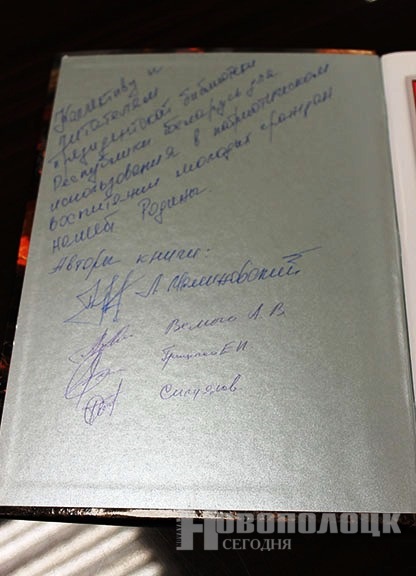 Коллективу и
читателям
президентской библиотеки
Республики Беларусь для
использования в патриотическом
воспитании молодых граждан
нашей Родины.
Авторы книги:
А. В.
Е И
НОВОПОЛОЦК
СЕГОДНЯ